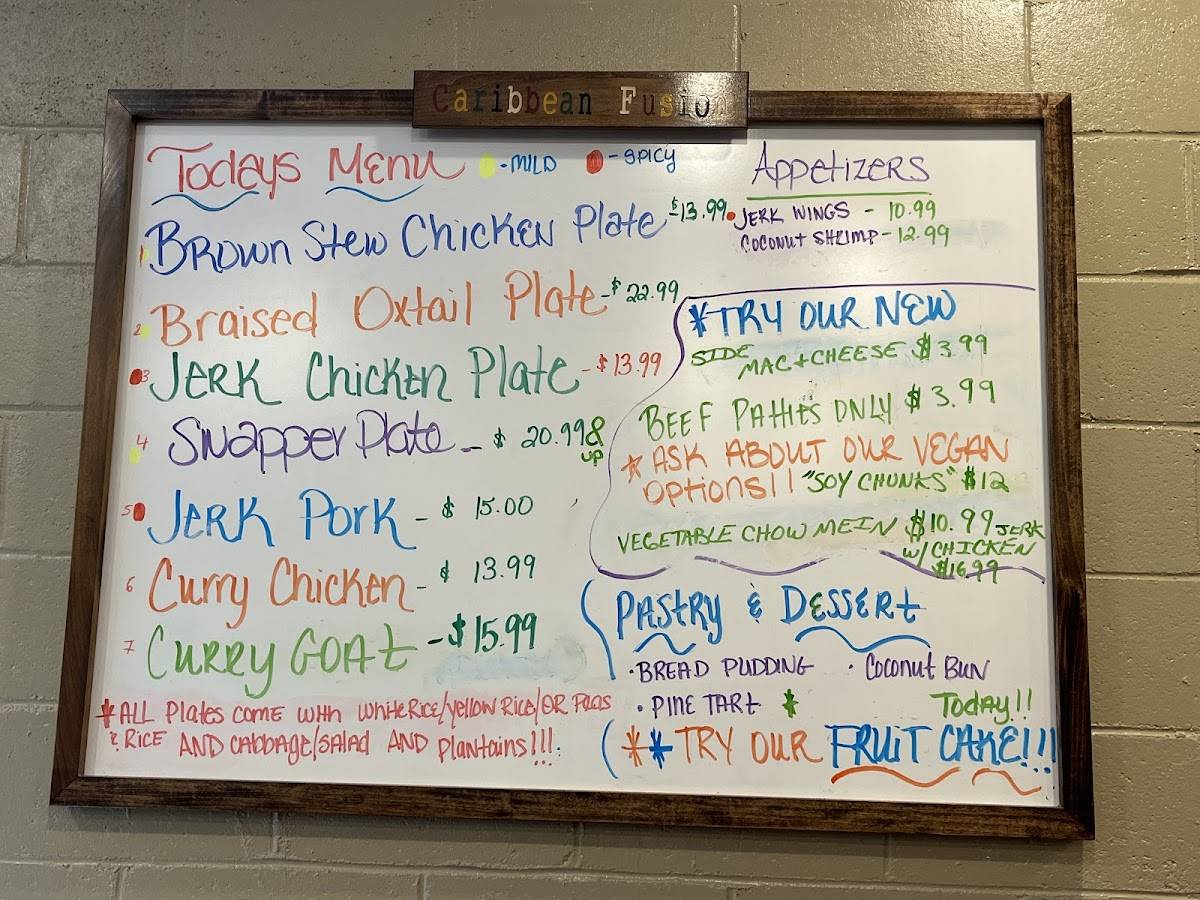 Caribbean Fusion
Todays Menu -MILD -SPICY
1 Brown Stew Chicken Plate $13.99
2 Braised Oxtail Plate-$22.99
3 Jerk Chicken Plate -$13.99
4 Swapper Plate - $ 20.99 & up
5 Jerk Pork - $ 15.00
6 Curry Chicken - $ 13.99
7 Curry Goat -$15.99
*ALL Plates come with white Rice/yellow Rice/OR Peas
& RICE AND cabbage/salad AND plantains!!!
Appetizers
JERK WINGS - 10.99
Coconut SHRIMP - 12.99
*TRY OUR NEW
SIDE
MAC + CHEESE $3.99
BEEF PATTIES ONLY $3.99
* ASK ABOUT OUR VEGAN
OPTIONS!! "SOY CHUNKS" $12
VEGETABLE CHOW MEIN $10.99 JERK
W/ CHICKEN
$16.99
PASTRY & DESSERT
• BREAD PUDDING • Coconut BUN
• PINE TART * Today!!
** TRY OUR FRUIT CAKE!!!